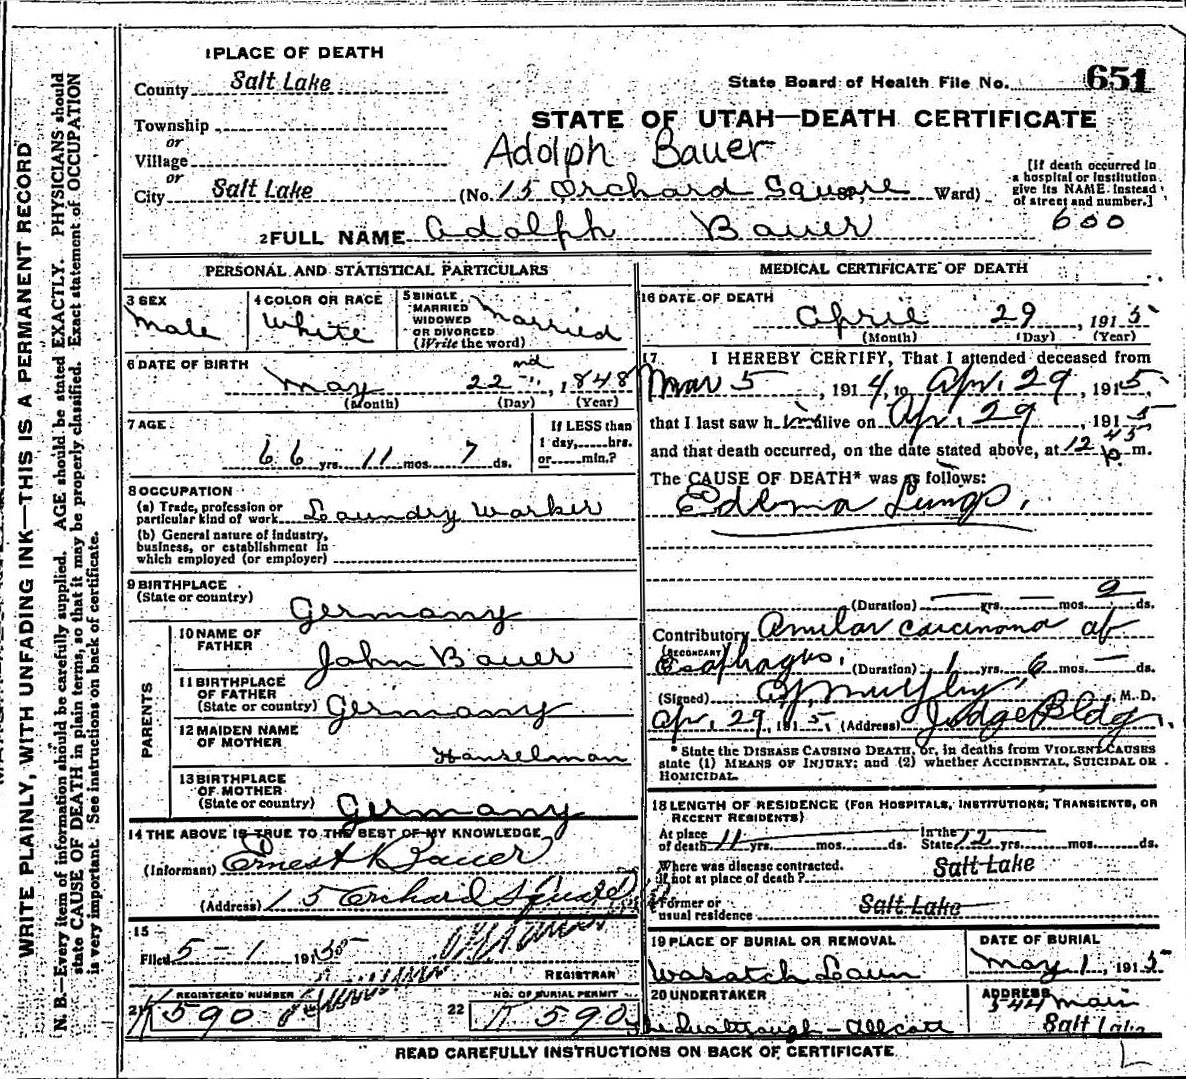 WRITE PLAINLY, WITH UNFADING INK—THIS IS A PERMANENT RECORD
N. B.—Every item of information should be carefully supplied. AGE should be stated EXACTLY. PHYSICIANS should
state CAUSE OF DEATH in plain terms, so that it may be properly classified. Exact statement of OCCUPATION
is very important. See instructions on back of certificate.
1 PLACE OF DEATH
County Salt Lake
State Board of Health File No. 651
Township
or
STATE OF UTAH—DEATH CERTIFICATE
Village
or
Adolph Bauer
City Salt Lake (No. 15 Orchard Square, Ward)
[If death occurred in
a hospital or institution
give its NAME instead
of street and number.]
600
2 FULL NAME Adolph Bauer
PERSONAL AND STATISTICAL PARTICULARS
3 SEX
Male
4 COLOR OR RACE
White
5 SINGLE
MARRIED
WIDOWED
OR DIVORCED
(Write the word)
Married
6 DATE OF BIRTH
May 22nd, 1848
(Month) (Day) (Year)
7 AGE
66 yrs. 11 mos. 7 ds.
If LESS than
1 day, hrs.
or min.?
8 OCCUPATION
(a) Trade, profession or
particular kind of work Laundry Worker
(b) General nature of industry,
business, or establishment in
which employed (or employer)
9 BIRTHPLACE
(State or country)
Germany
PARENTS
10 NAME OF
FATHER
John Bauer
11 BIRTHPLACE
OF FATHER
(State or country) Germany
12 MAIDEN NAME
OF MOTHER
Hanselman
13 BIRTHPLACE
OF MOTHER
(State or country) Germany
14 THE ABOVE IS TRUE TO THE BEST OF MY KNOWLEDGE
(Informant) Ernest Bauer
(Address) 15 Orchard Square
15
Filed 5-1 1915
REGISTRAR
21 REGISTERED NUMBER
K 590
22 NO. OF BURIAL PERMIT
K 590
MEDICAL CERTIFICATE OF DEATH
16 DATE OF DEATH
April 29, 1915
(Month) (Day) (Year)
17 I HEREBY CERTIFY, That I attended deceased from
Mar 5, 1914, to Apr. 29, 1915,
that I last saw him alive on Apr. 29, 1915
and that death occurred, on the date stated above, at 12 45 p. m.
The CAUSE OF DEATH* was as follows:
Edema Lungs.
(Duration) — yrs. — mos. 2 ds.
Contributory Annular carcinoma of
(SECONDARY)
Esophagus. (Duration) 1 yrs. 6 mos. — ds.
(Signed) Murphy, M. D.
Apr. 29, 1915 (Address) Judge Bldg.
* State the DISEASE CAUSING DEATH, or, in deaths from VIOLENT CAUSES
state (1) MEANS OF INJURY; and (2) whether ACCIDENTAL, SUICIDAL OR
HOMICIDAL.
18 LENGTH OF RESIDENCE (FOR HOSPITALS, INSTITUTIONS, TRANSIENTS, OR
RECENT RESIDENTS)
At place
of death 11 yrs. mos. ds.
In the
State 12 yrs. mos. ds.
Where was disease contracted.
if not at place of death? Salt Lake
Former or
usual residence Salt Lake
19 PLACE OF BURIAL OR REMOVAL
Wasatch Lawn
DATE OF BURIAL
May 1, 1915
20 UNDERTAKER
ADDRESS
544 Main
Salt Lake
READ CAREFULLY INSTRUCTIONS ON BACK OF CERTIFICATE